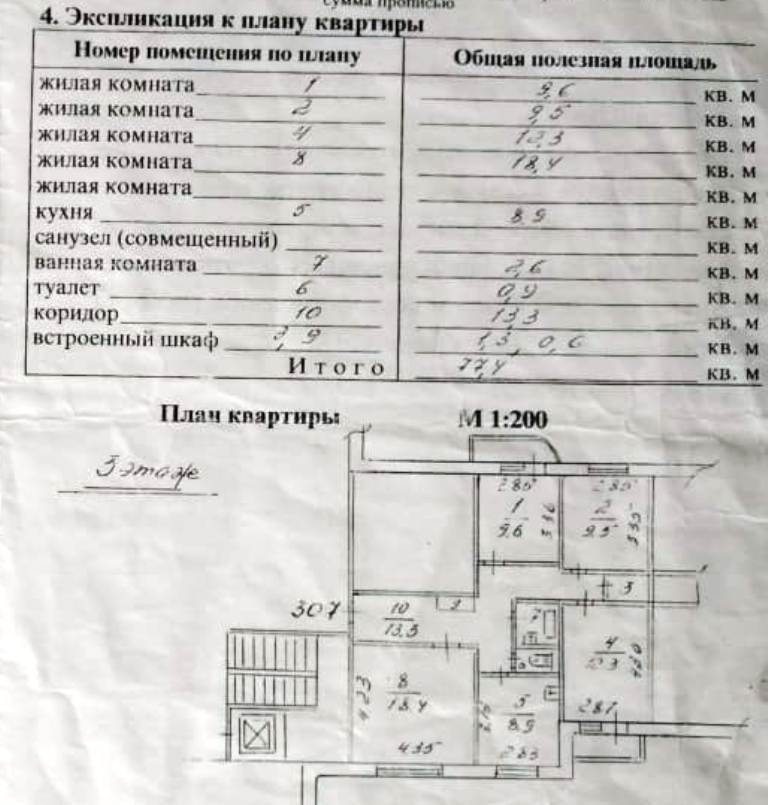 сумма прописью
4. Экспликация к плану квартиры
Номер помещения по плану Общая полезная площадь
жилая комната 1 9,6 кв. м
жилая комната 2 9,5 кв. м
жилая комната 4 12,3 кв. м
жилая комната 8 18,4 кв. м
жилая комната кв. м
кухня 5 8,9 кв. м
санузел (совмещенный) кв. м
ванная комната 7 2,6 кв. м
туалет 6 0,9 кв. м
коридор 10 13,3 кв. м
встроенный шкаф 3, 9 1,3, 0,6 кв. м
Итого 77,4 кв. м
План квартиры М 1:200
5 этаж
2.85 2.85
1 3.36 2 3.35
9.6 9.5
3
307 10 9 7
13.3
4 4.50
12.3
8 5
4.23 18.4 8.9 2.81
4.35 2.83